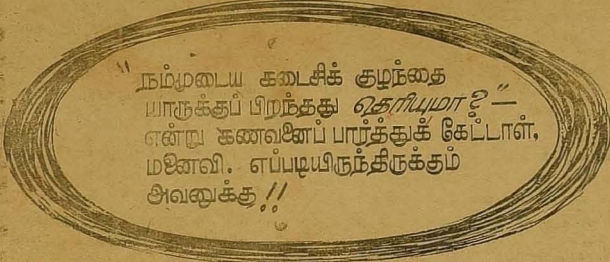 "நம்முடைய கடைசிக் குழந்தை
யாருக்குப் பிறந்தது தெரியுமா?"—
என்று கணவனைப் பார்த்துக் கேட்டாள்,
மனைவி. எப்படியிருந்திருக்கும்
அவனுக்கு!!